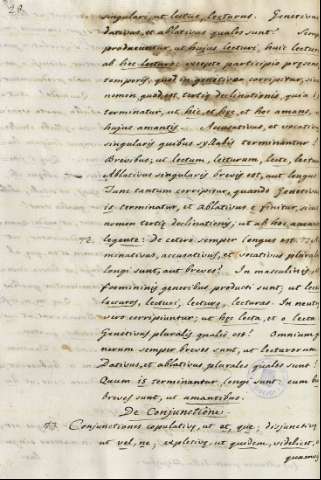 28.
singulari, ut lectus, lecturus. Genetivus
dativus, et ablativus quales sunt? Semp
producuntur, ut hujus lecturi, huic lectur
ab hoc lecturo: excepto participio præsen
temporis, quod in genetivo corripitur, sicu
nomen quod est tertię declinationis, quia i
terminatur, ut hic et hęc, et hoc amans,
hujus amantis. Accusativus, et vocativ
singularis quibus syllabis terminantur?
Brevibus; ut lectum, lecturum, lecte, lectur
Ablativus singularis brevis est, aut longus
Tunc tantum corripitur, quando Genetivu
is terminatur, et ablativus e finitur, sicu
nomen tertię declinationis, ut ab hoc amant
legente: de cetero semper longus est.
72. minativus, accusativus, et vocativus plurale
longi sunt, aut breves? In masculinis
foemininis generibus producti sunt, ut lect
lecturos, lecturi, lecturę, lecturas. In neutr
vero corripiuntur; ut hęc lecta, et o lecta
Genetivus pluralis qualis est? Omnium
nerum semper breves sunt, ut lectorum
Dativus, et ablativus plurales quales sunt?
Quum is terminantur, longi sunt: cum bu
breves sunt, ut amantibus.
De Conjunctione.
73. Conjunctiones copulativę, ut et, que; disjunctiv
ut vel, ne; expletivę, ut quidem, videlicet,
quamvis